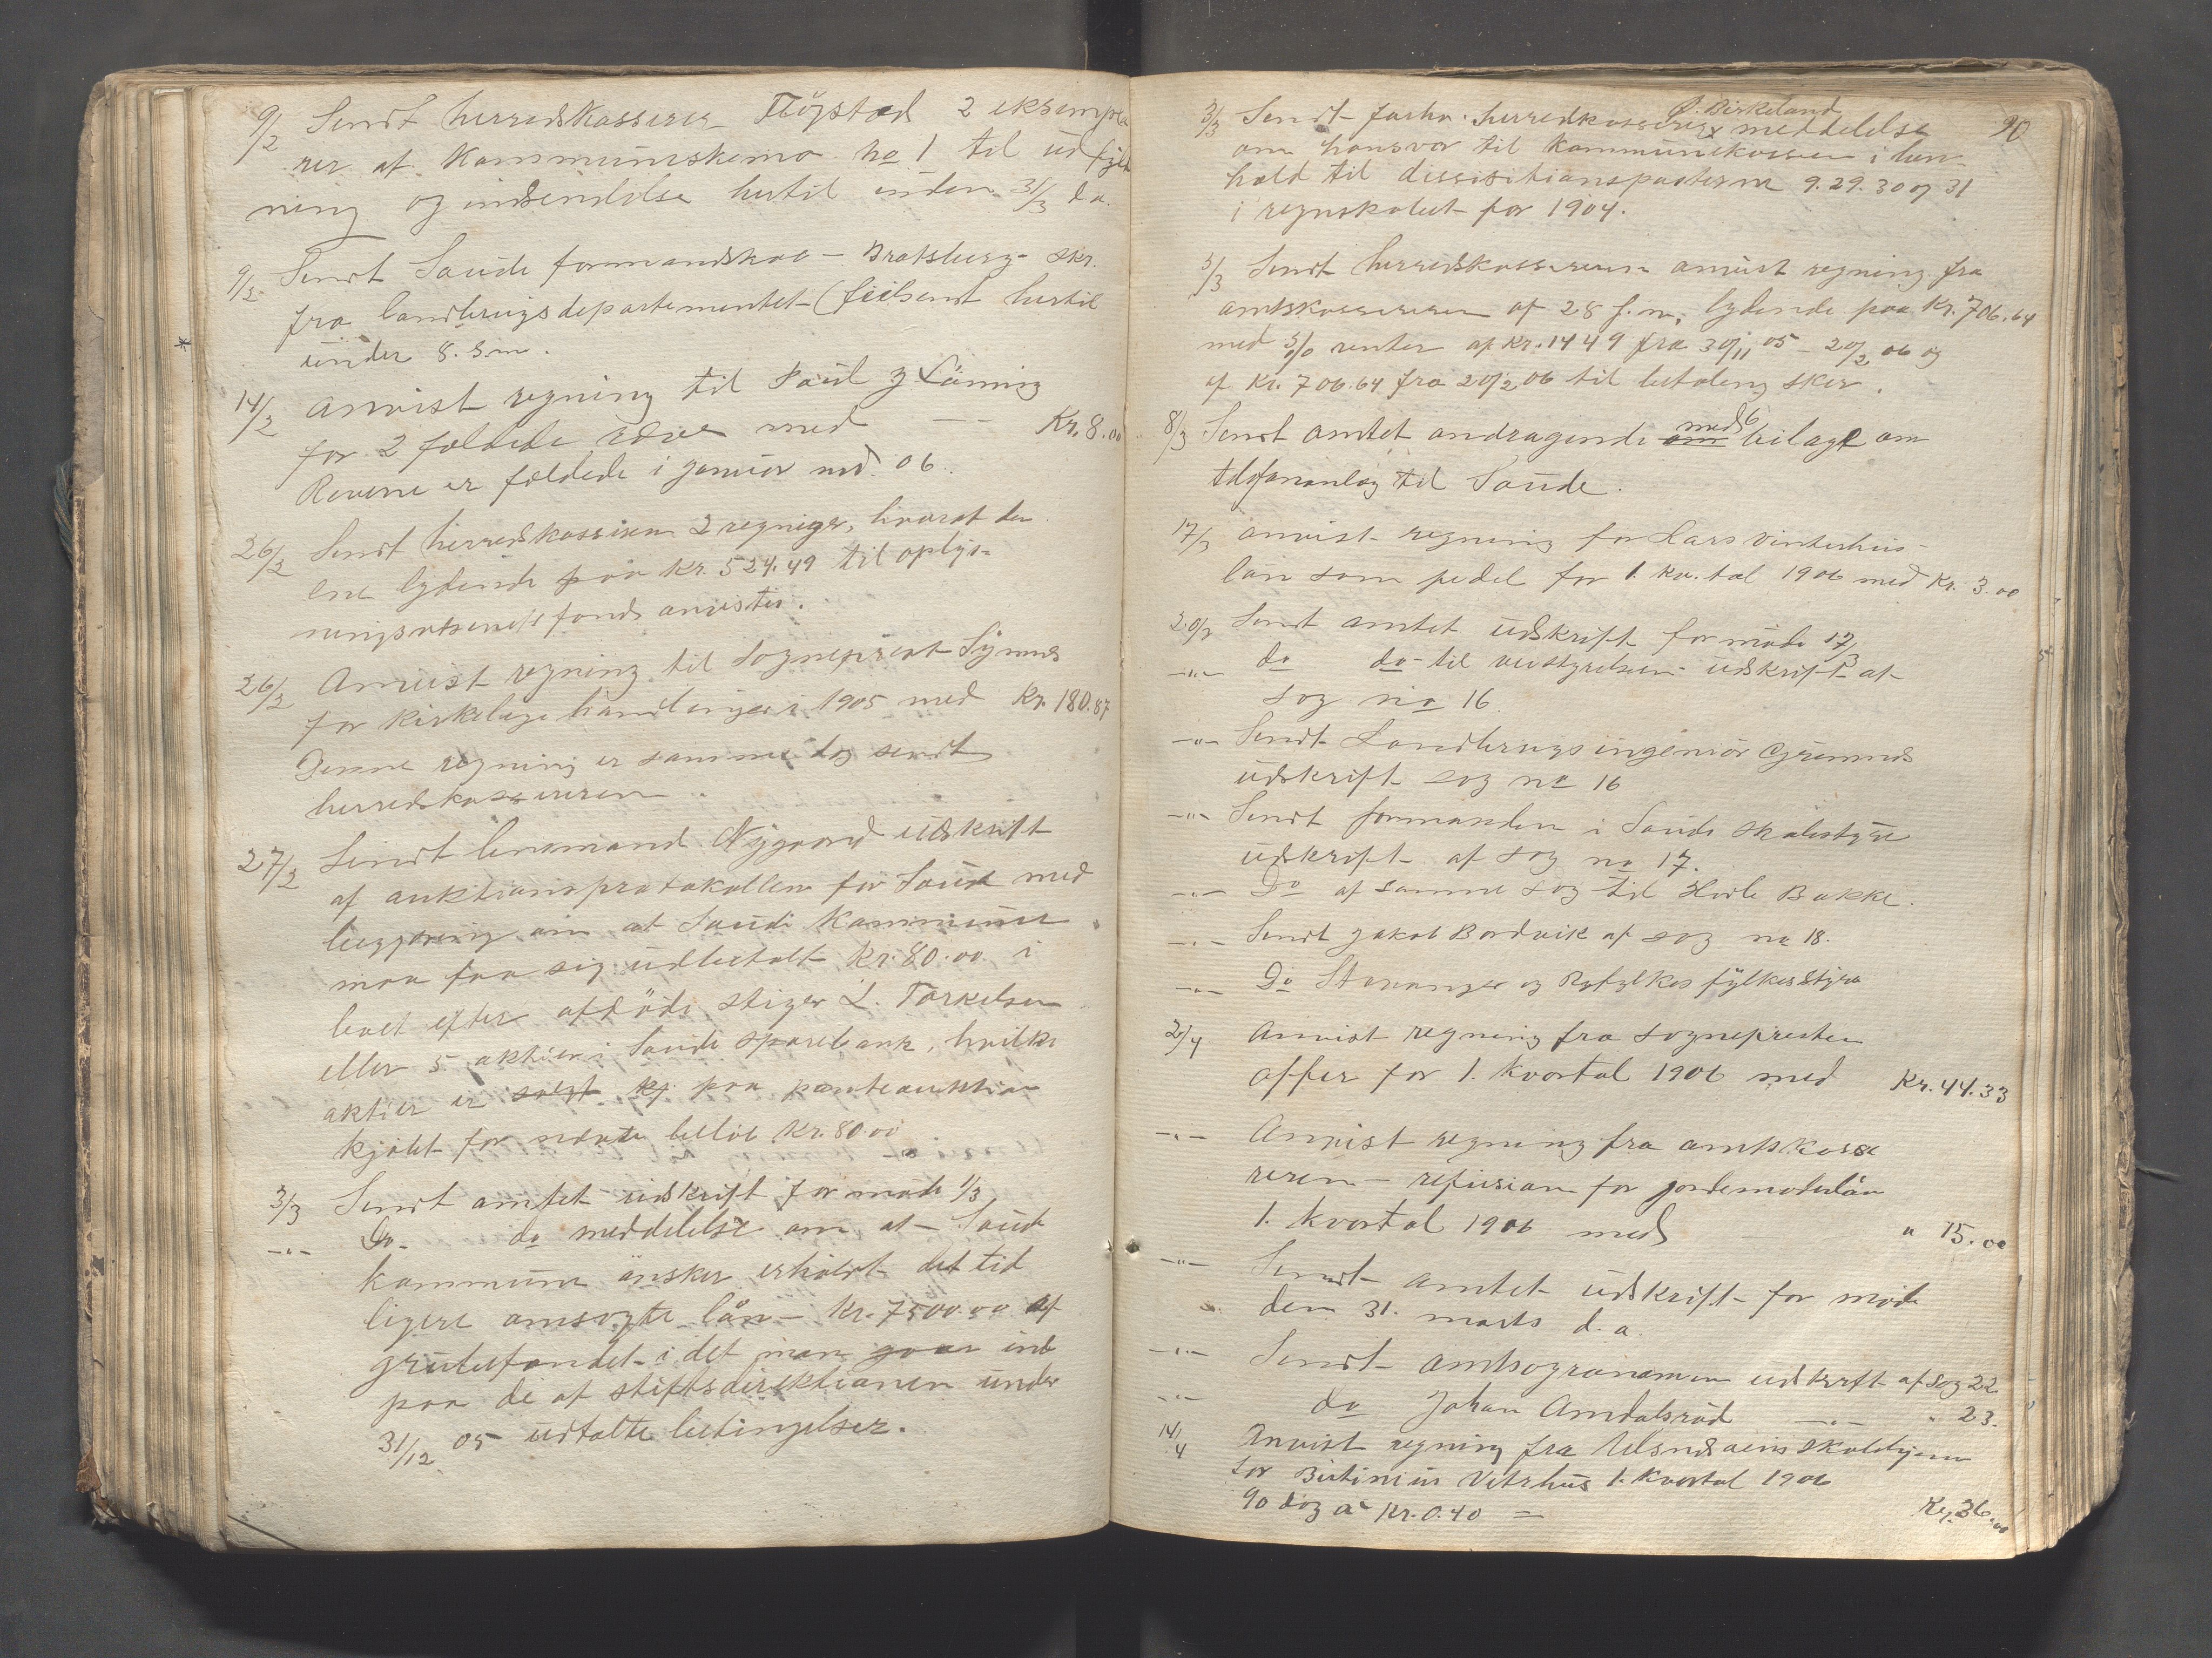 9/2 Sendt herredskasserer Fløgstad 2 eksempla
rer af Kommuneskema no 1 til udfyld
ning og indsendelse hertil inden 31/3 d.a.
9/2 Sendt Saude formandskab - Bratsberg - skr.
fra landbrugsdepartementet (feilsendt hertil
under 8. s.m.
14/2 Anvist regning til Paul J Løning
for 2 fældede ræve med — Kr. 8.00
Revene er fældede i januar md. 06.
26/2 Sendt herredskassereren 2 regninger, hvorat den
ene lydende paa kr. 524.49 til oplys-
ningsvæsenets fond anvistes.
26/2 Anvist regning til sogneprest Synnes
for kirkelige handlinger i 1905 med Kr. 180.87
Denne regning er samme dag sendt
herredskassereren
27/2 Sendt lensmand Nygaard udskrift
af auktionsprotokollen for Saude med
begjæring om at Saude Kommune
maa faa sig udbetalt Kr. 80.00 i
boet efter afdøde stiger L. Torkelsen
eller 5 aktier i Saude sparebank, hvilke
aktier er solgt kj paa panteauktion
kjøbt for nævnte beløb Kr. 80.00
3/3 Sendt amtet udskrift for møde 1/3
-"- Do. do meddelelse om at Saude
kommune ønsker erholdt det tid
ligere omsøgte lån - Kr. 7500.00 af
grubefondet i det man gaar ind
paa de af stiftsdirektionen under
31/12 05 udtalte betingelser.
90
Ø. Birkeland
3/3 Sendt forhv. herredkasserer x meddelelse
om hans var til Kommunekassen i hen-
hold til dissisitionsposterne 9. 29. 30 og 31
i regnskabet for 1904.
3/3 Sendt herredskassereren anvist regning fra
amtskassereren af 28 f.m., lydende paa Kr. 706.64
med 5% renter af Kr. 1449 fra 30/11 05 - 20/2 06 og
af Kr. 706.64 fra 20/2 06 til betaling sker.
8/3 Sendt amtet andragende om med 6 bilage om
telefonanlæg til Saude.
17/3 Anvist regning for Lars Vinterhus
løn som pedel for 1. kv.tal 1906 med Kr. 3.00
20/3 Sendt amtet udskrift for møde 17/3
-"- do do til veistyrelsen udskrift at
sag no 16.
-"- Sendt Landbrugsingeniør Grimnes
udskrift sag no 16
-"- Sendt formanden i Saude skolestyre
udskrift af sag no 17.
-"- Do af samme sag til Bakke.
-"- Sendt Jakob Bordvik af sag no 18.
-"- Do Stavanger og Ryfylkes fylkesstyre
2/4 Anvist regning fra sognepresten
offer for 1. kvartal 1906 med Kr. 44.33
-"- Anvist regning fra amtskasse
reren - refusion for jordemoderløn
1. kvartal 1906 med — " 15.00
-"- Sendt amtet udskrift for møde
den 31. marts d.a.
-"- Sendt amtsagronomen udskrift af sag 22.
-"- do Johan Amdalsrød —"— " 23.
14/4 Anvist regning fra skolehjem
for Vetrhus 1. kvartal 1906
90 dag a Kr. 0.40 = Kr. 36.00